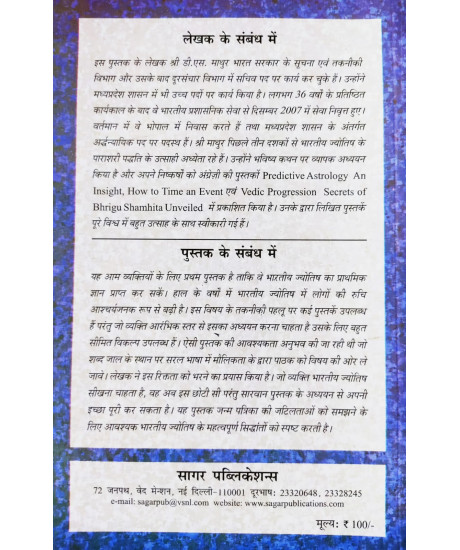 लेखक के संबंध में
इस पुस्तक के लेखक श्री डी.एस. माथुर भारत सरकार के सूचना एवं तकनीकी
विभाग और उसके बाद दूरसंचार विभाग में सचिव पद पर कार्य कर चुके हैं। उन्होंने
मध्यप्रदेश शासन में भी उच्च पदों पर कार्य किया है। लगभग 36 वर्षों के प्रतिष्ठित
कार्यकाल के बाद वे भारतीय प्रशासनिक सेवा से दिसम्बर 2007 में सेवा निवृत्त हुए।
वर्तमान में वे भोपाल में निवास करते हैं तथा मध्यप्रदेश शासन के अंतर्गत
अर्द्धन्यायिक पद पर पदस्थ हैं। श्री माथुर पिछले तीन दशकों से भारतीय ज्योतिष के
पाराशरी पद्धति के उत्साही अध्येता रहे हैं। उन्होंने भविष्य कथन पर व्यापक अध्ययन
किया है और अपने निष्कर्षों को अंग्रेजी की पुस्तकों Predictive Astrology An
Insight, How to Time an Event एवं Vedic Progression Secrets of
Bhrigu Shamhita Unveiled में प्रकाशित किया है। उनके द्वारा लिखित पुस्तकें
पूरे विश्व में बहुत उत्साह के साथ स्वीकारी गई हैं।
पुस्तक के संबंध में
यह आम व्यक्तियों के लिए प्रथम पुस्तक है ताकि वे भारतीय ज्योतिष का प्राथमिक
ज्ञान प्राप्त कर सकें। हाल के वर्षों में भारतीय ज्योतिष में लोगों की रुचि
आश्चर्यजनक रूप से बढ़ी है। इस विषय के तकनीकी पहलू पर कई पुस्तकें उपलब्ध
हैं परंतु जो व्यक्ति आरंभिक स्तर से इसका अध्ययन करना चाहता है उसके लिए बहुत
सीमित विकल्प उपलब्ध हैं। ऐसी पुस्तक की आवश्यकता अनुभव की जा रही थी जो
शब्द जाल के स्थान पर सरल भाषा में मौलिकता के द्वारा पाठक को विषय की ओर ले
जावे। लेखक ने इस रिक्तता को भरने का प्रयास किया है। जो व्यक्ति भारतीय ज्योतिष
सीखना चाहता है, वह अब इस छोटी सी परंतु सारवान पुस्तक के अध्ययन से अपनी
इच्छा पूरी कर सकता है। यह पुस्तक जन्म पत्रिका की जटिलताओं को समझने के
लिए आवश्यक भारतीय ज्योतिष के महत्वपूर्ण सिद्धांतों को स्पष्ट करती है।
सागर पब्लिकेशन्स
72 जनपथ, वेद मेन्शन, नई दिल्ली-110001 दूरभाष: 23320648, 23328245
e-mail: sagarpub@vsnl.com website: www.sagarpublications.com
मूल्य: ₹ 100/-